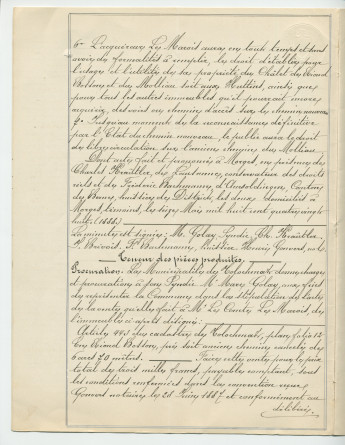 6° L'acquéreur Le Marois aura en tout temps et sans
avoir de formalités à remplir, le droit d'établir pour
l'usage et l'utilité de sa propriété du Châlet du Grand
Botton et des Mollian soit aux Huttins, ainsi que
pour tout les autres immeubles qu'il pourrait encore
acquérir, des voies ou chemins d'accès sur le chemin nouveau
7° Jusqu'au moment de la reconnaissance définitive
par l'Etat du chemin nouveau, le public aura le droit
de libre circulation sur l'ancien chemin des Mollian.
Dont acte, fait et prononcé à Morges, en présence de
Charles Kraüttler, de Lausanne, conservateur des droits
réels et de Frédéric Bachmann, d'Ausoldingen, Canton
de Berne, huissier du District, les deux domiciliés à
Morges, témoins, le seize Mai mil huit cent quatre vingt
huit (1888).
La minute est signée: M. Golay Syndic, Ch. Kraüttler,
F. Bachmann, Henri Gonvers, not.
Teneur des pièces produites.
Procuration. La Municipalité de donne charge
et procuration à son Syndic Mr Marc Golay, aux fins
de représenter la Commune dans la stipulation de l'acte
de la vente qu'elle fait à Mr Le Comte Le Marois, de
l'immeuble ci-après désigné:
Article du cadastre de plan folio 12
En Grand Botton, pré soit ancien chemin cadastré de
6 ares 70 mètres. Faire cette vente pour le prix
total de trois mille francs, payable comptant, sous
les conditions renfermées dans la convention reçue
Gonvers notaire, le 28 Juin 1887 et conformément au
délibéré